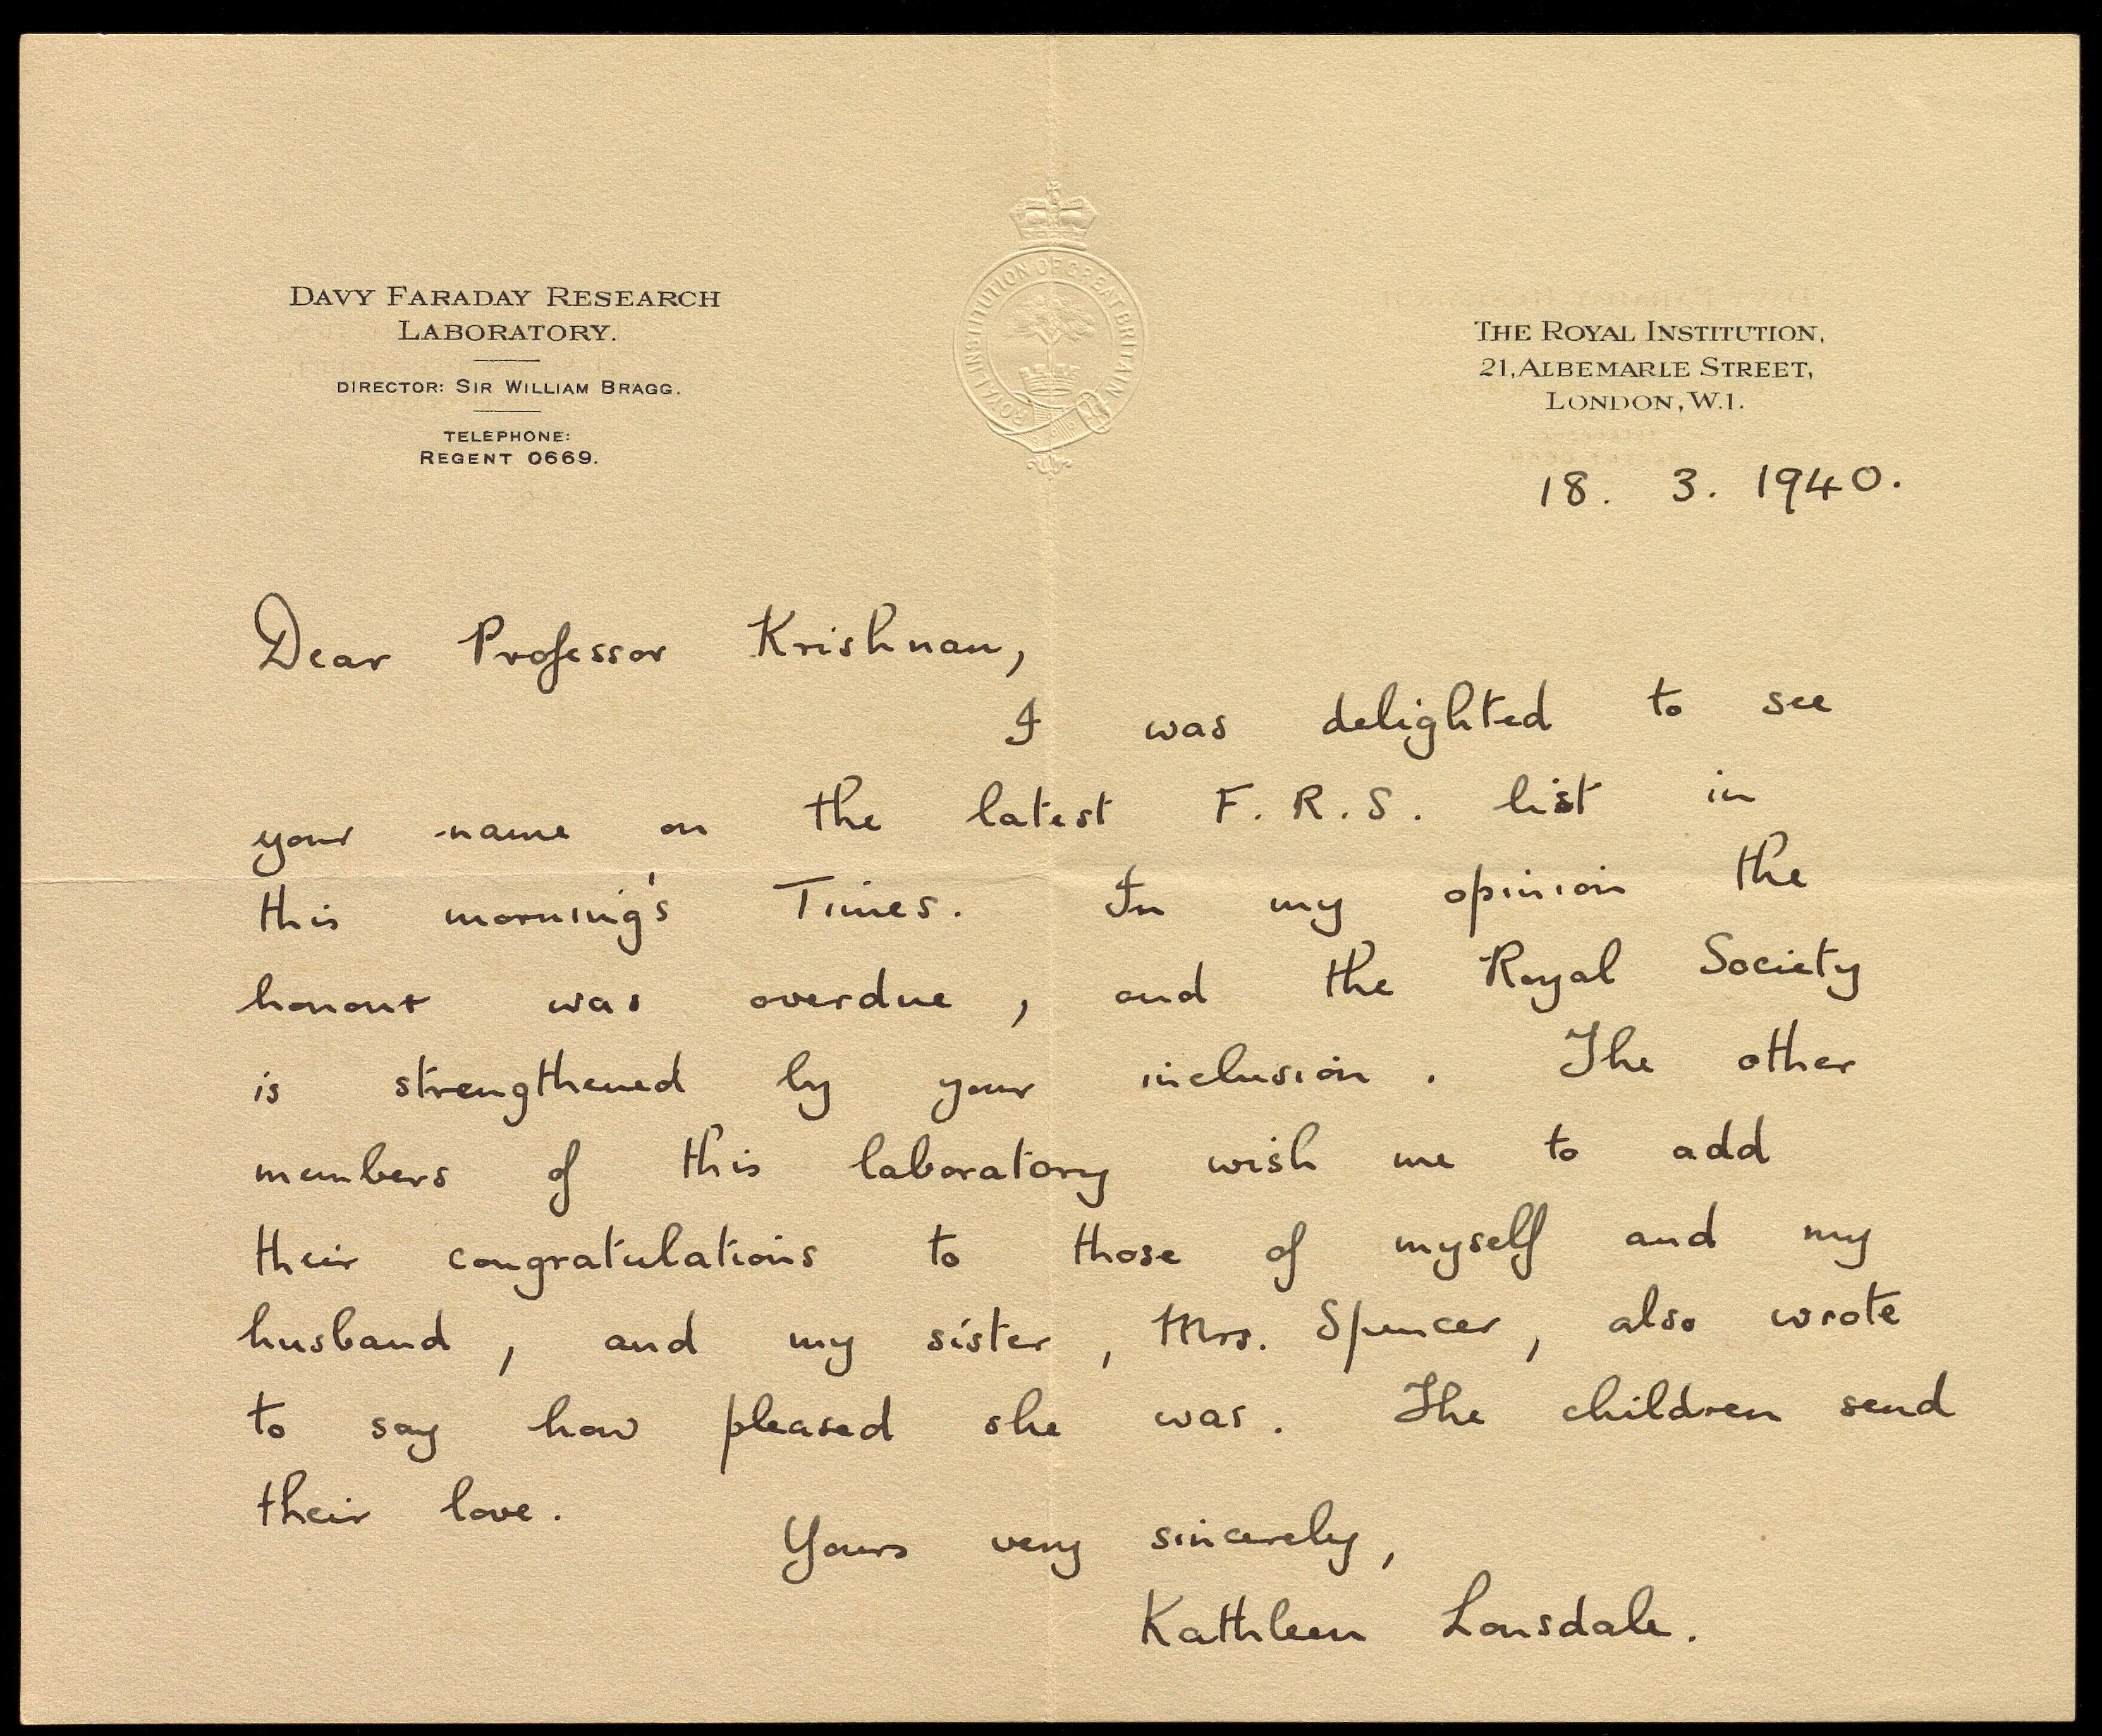 DAVY FARADAY RESEARCH
LABORATORY.
DIRECTOR: SIR WILLIAM BRAGG.
TELEPHONE:
REGENT 0669.
ROYAL INSTITUTION OF GREAT BRITAIN
THE ROYAL INSTITUTION,
21, ALBEMARLE STREET,
LONDON, W.1.
18. 3. 1940.
Dear Professor Krishnan,
I was delighted to see
your name on the latest F.R.S. list in
this morning's Times. In my opinion the
honour was overdue, and the Royal Society
is strengthened by your inclusion. The other
members of this laboratory wish me to add
their congratulations to those of myself and my
husband, and my sister, Mrs. Spencer, also wrote
to say how pleased she was. The children send
their love.
Yours very sincerely,
Kathleen Lonsdale.